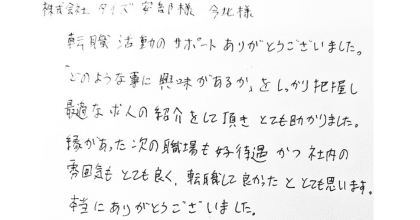 株式会社 タイズ 安部様 今北様
転職活動のサポートありがとうございました。
「どのような事に興味があるか」をしっかり把握し
最適な求人の紹介をして頂きとても助かりました。
縁があった次の職場も好待遇かつ社内の
雰囲気もとても良く、転職して良かったととても思います。
本当にありがとうございました。